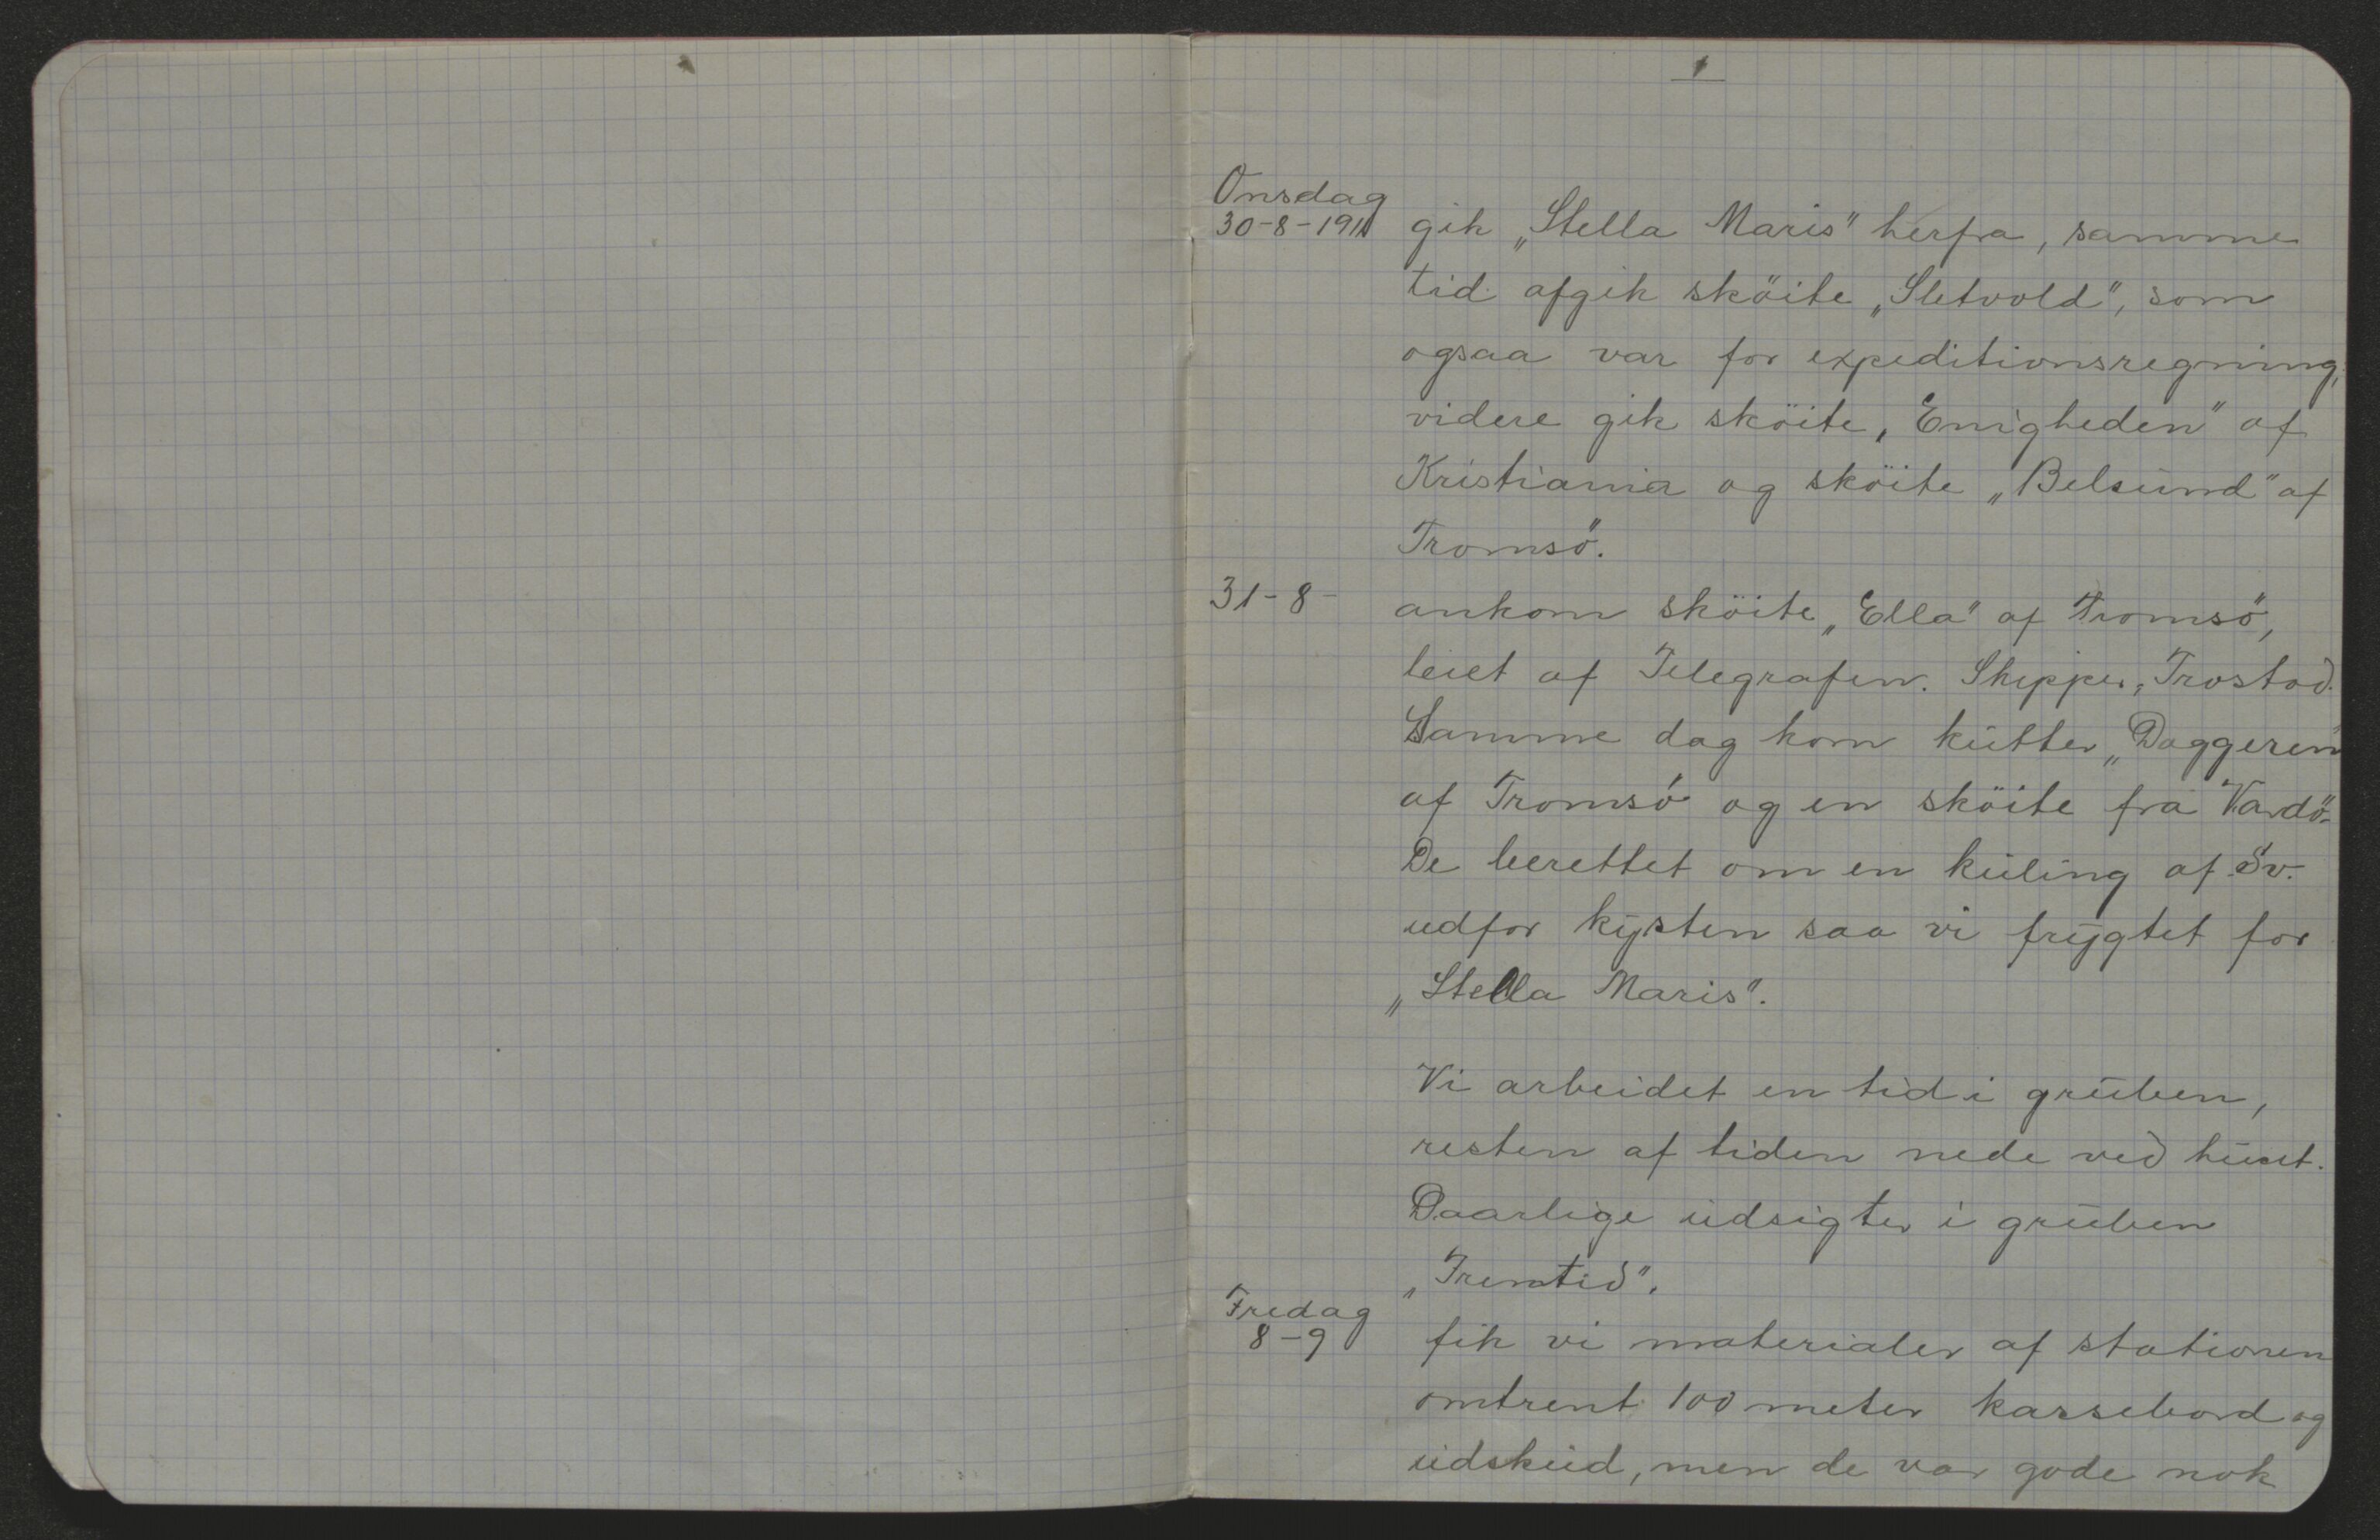 1
Onsdag
30-8-1911 gik „Stella Maris" herfra, samme
tid afgik sköite „Sletvold", som
ogsaa var for expeditionsregning,
videre gik sköite „Enigheden" af
Kristiania og sköite „Belsund" af
Tromsö.
31-8- ankom sköite „Ella" af Tromsö,
leiet af Telegrafen. Skipper, Trostad.
Samme dag kom kutter „Doggeren"
af Tromsö og en sköite fra Vardö.
De berettet om en kuling af Sv.
udfor kysten saa vi frygtet for
„Stella Maris".
Vi arbeidet en tid i gruben,
resten af tiden nede ved huset.
Daarlige udsigter i gruben
„Fremtid".
Fredag
8-9 fik vi materialer af stationen
omtrent 100 meter kassebord og
udskud, men de var gode nok